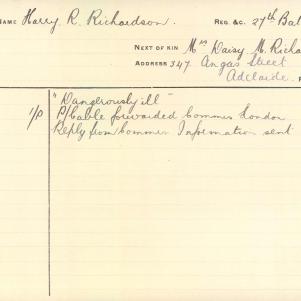 NAME Harry R. Richardson. REG. &C. 27th Bat
NEXT OF KIN Mrs Daisy M. Richa
ADDRESS 347 Angas Street
Adelaide.
"Dangerously ill"
1/P P/cable forwarded Commrs London
Reply from Commrs Information sent